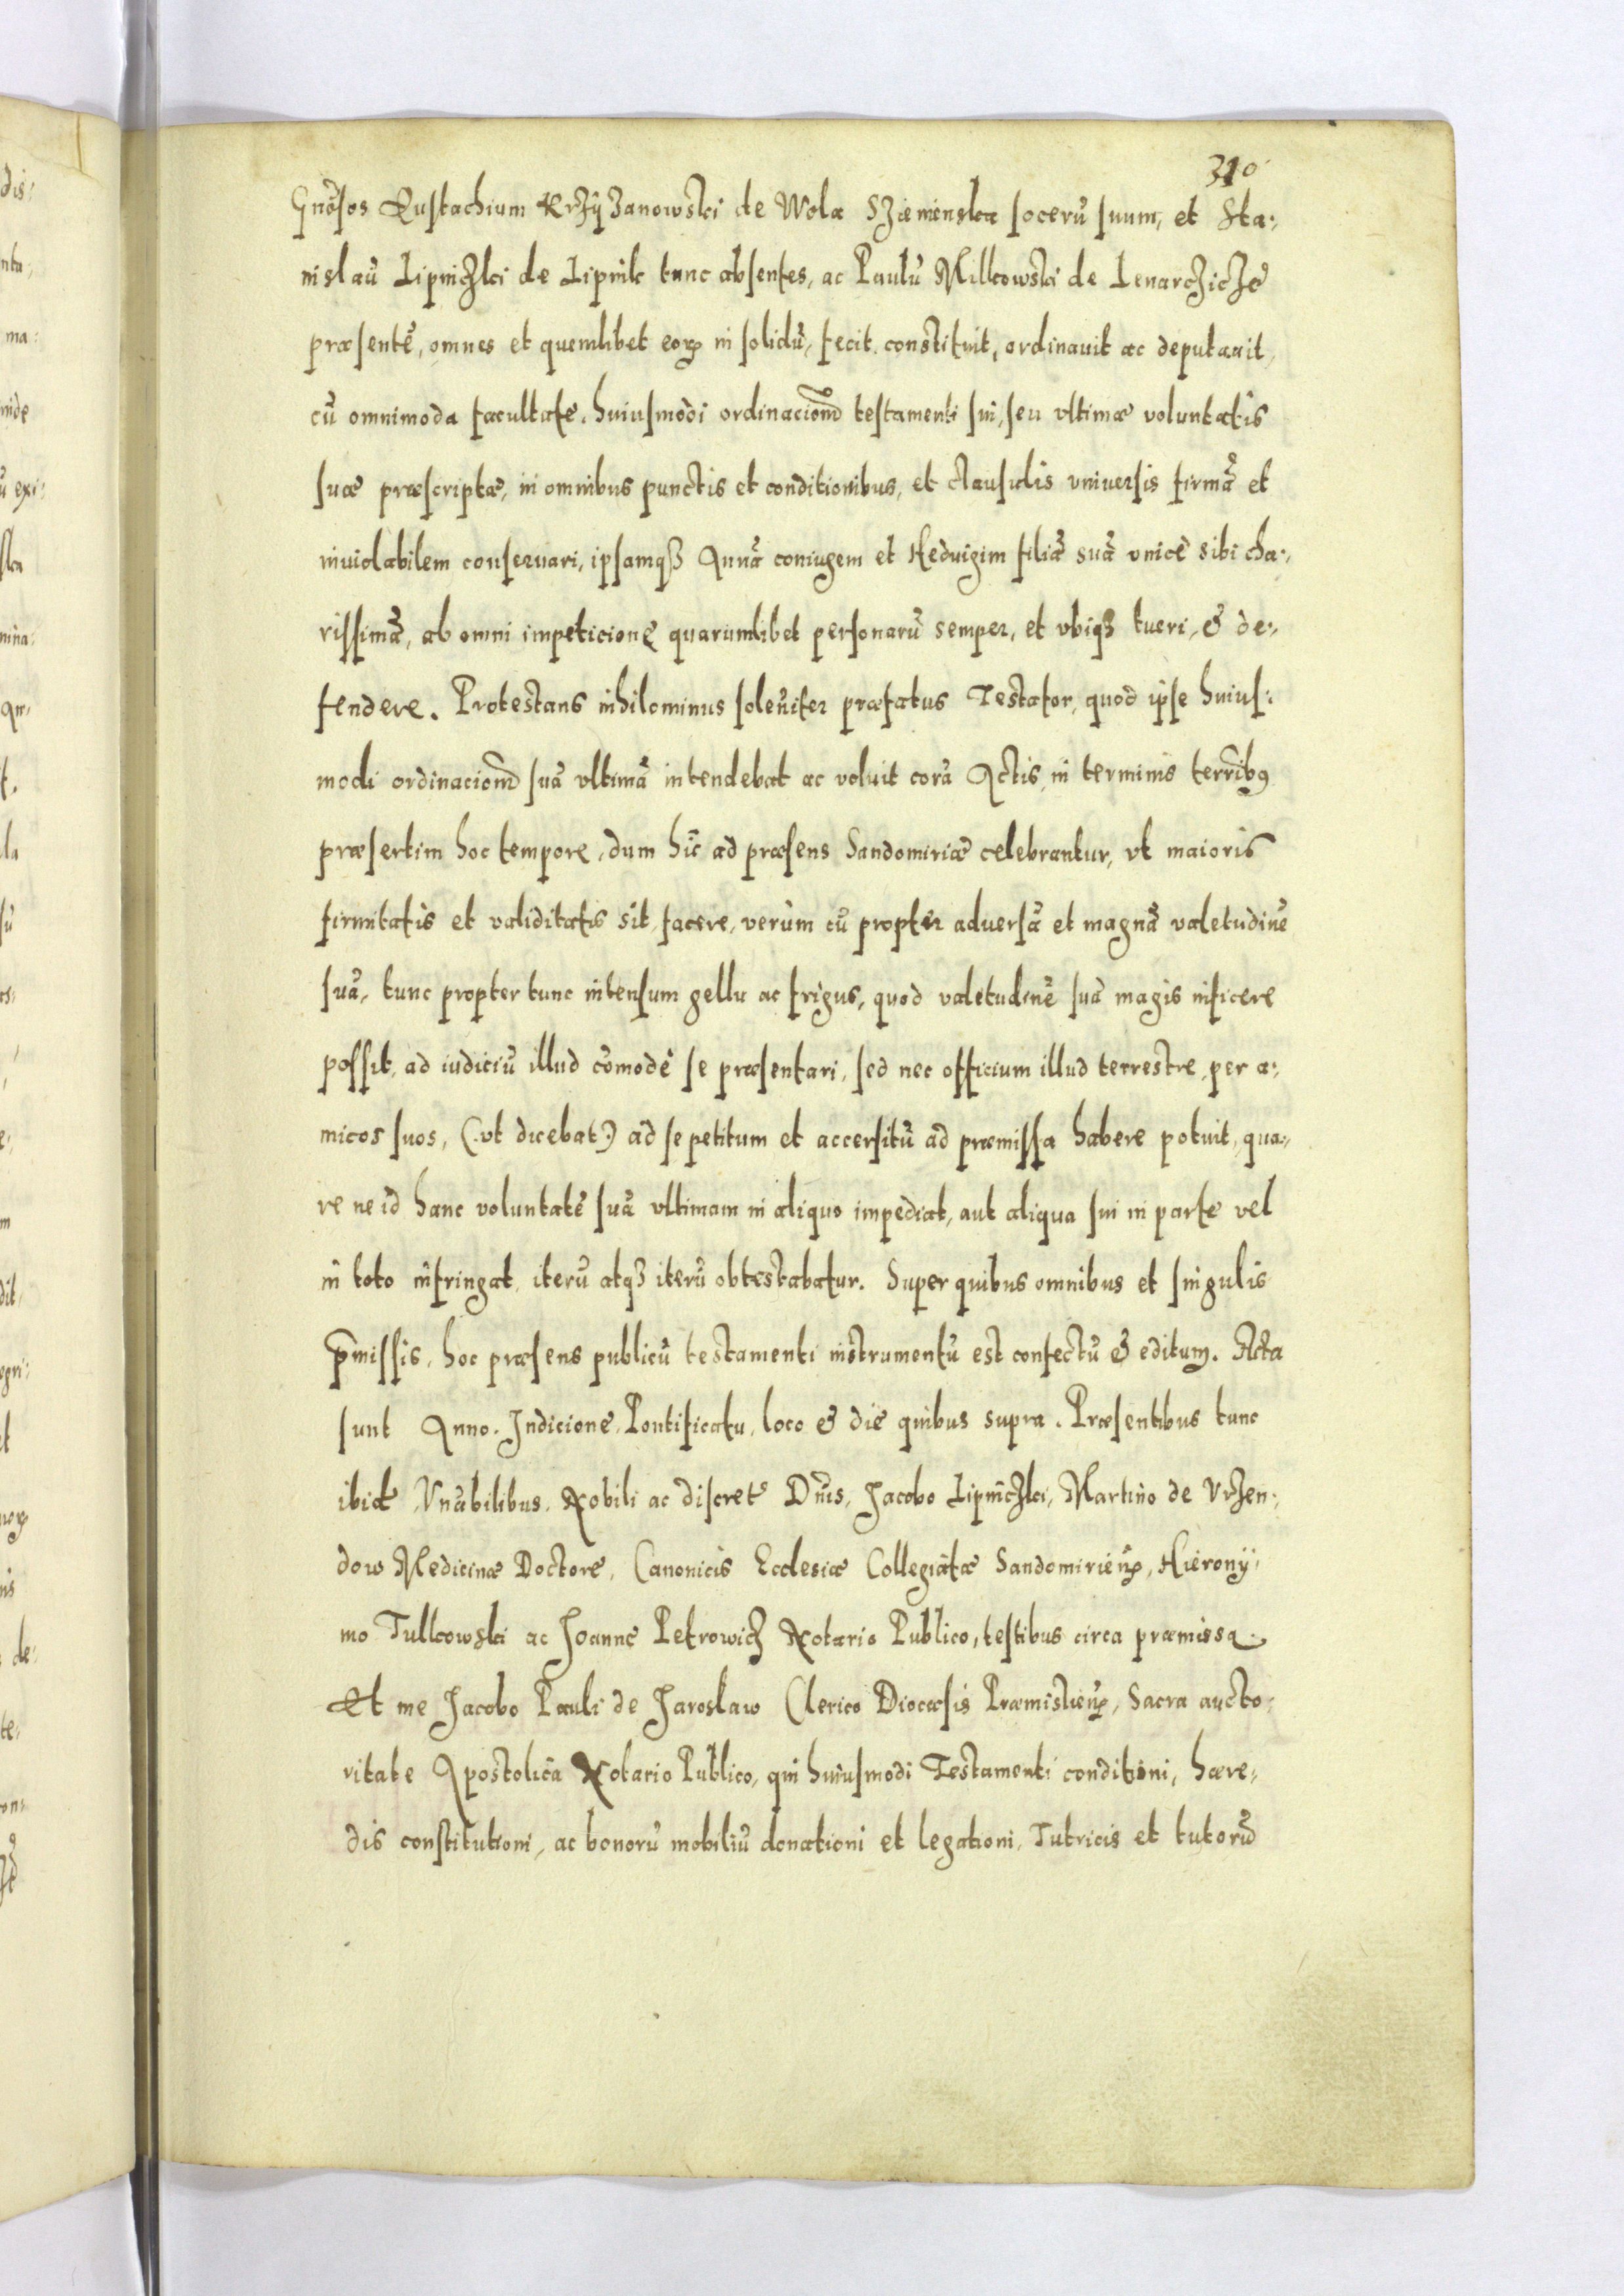 310
Gnōsos Eustachium Krzÿzanowski de Wola Sziemienska socerū suum, et Sta:
nislaū Lipniczki de Lipnik tunc absentes, ac Paulū Milkowski de Lenarczicze
præsentē, omnes et quemlibet eoꝝ in solidū, fecit, constituit, ordinauit ac deputauit,
cū omnimoda facultate, huiusmodi ordinacionē testamenti sui, seu vltimæ voluntatis
suæ præscriptæ, in omnibus punctis et conditionibus, et clausulis vniuersis firmā et
inuiolabilem conseruari, ipsamqꝫ Annā coniugem et Heduigim filiā suā vnicè sibi cha:
rissimā, ab omni impeticione quarumlibet personarū semper, et vbiqꝫ tueri, & de:
fendere. Protestans nihilominus soleniter præfatus Testator, quod ipse huius:
modi ordinacionē suā vltimā intendebat ac voluit corā Actis, in terminis terrībꝰ
præsertim hoc tempore, dum hic ad præsens Sandomiriæ celebrantur, vt maioris
firmitatis et validitatis sit, facere, verùm cū propter aduersā et magnā valetudinē
suā, tunc propter tunc intensum gellu ac frigus, quod valetudinē suā magis inficere
possit, ad iudiciū illud cōmodè se præsentari, sed nec officium illud terrestre, per a:
micos suos, (:vt dicebat:) ad se petitum et accersitū ad præmissa habere potuit, qua:
re ne id hanc voluntatē suā vltimam in aliquo impediat, aut aliqua sui in parte vel
in toto infringat, iterū atqꝫ iterū obtestabatur. Super quibus omnibus et singulis
p̄missis, hoc præsens publicū testamenti instrumentū est confectū & editum. Acta
sunt Anno, Indicione, Pontificatu, loco & die quibus supra. Præsentibus tunc
ibidē Vnābilibus, Nobili ac discretꝭ Dn̄is, Jacobo Lipniczki, Martino de Vrzen:
dow Medicinæ Doctore, Canonicis Ecclesiæ Collegiatæ Sandomirien̄ꝝ, Hieronÿ:
mo Tulkowski ac Joanne Petrowicz Notario Publico, testibus circa præmissa.
Et me Jacobo Pauli de Jaroslaw Clerico Diocæsis Præmislien̄ꝝ, Sacra aucto:
ritate Apostolica Notario Publico, qui huiusmodi Testamenti conditioni, hære:
dis constitutioni, ac bonorū mobiliū donationi et legationi, Tutricis et tutorū